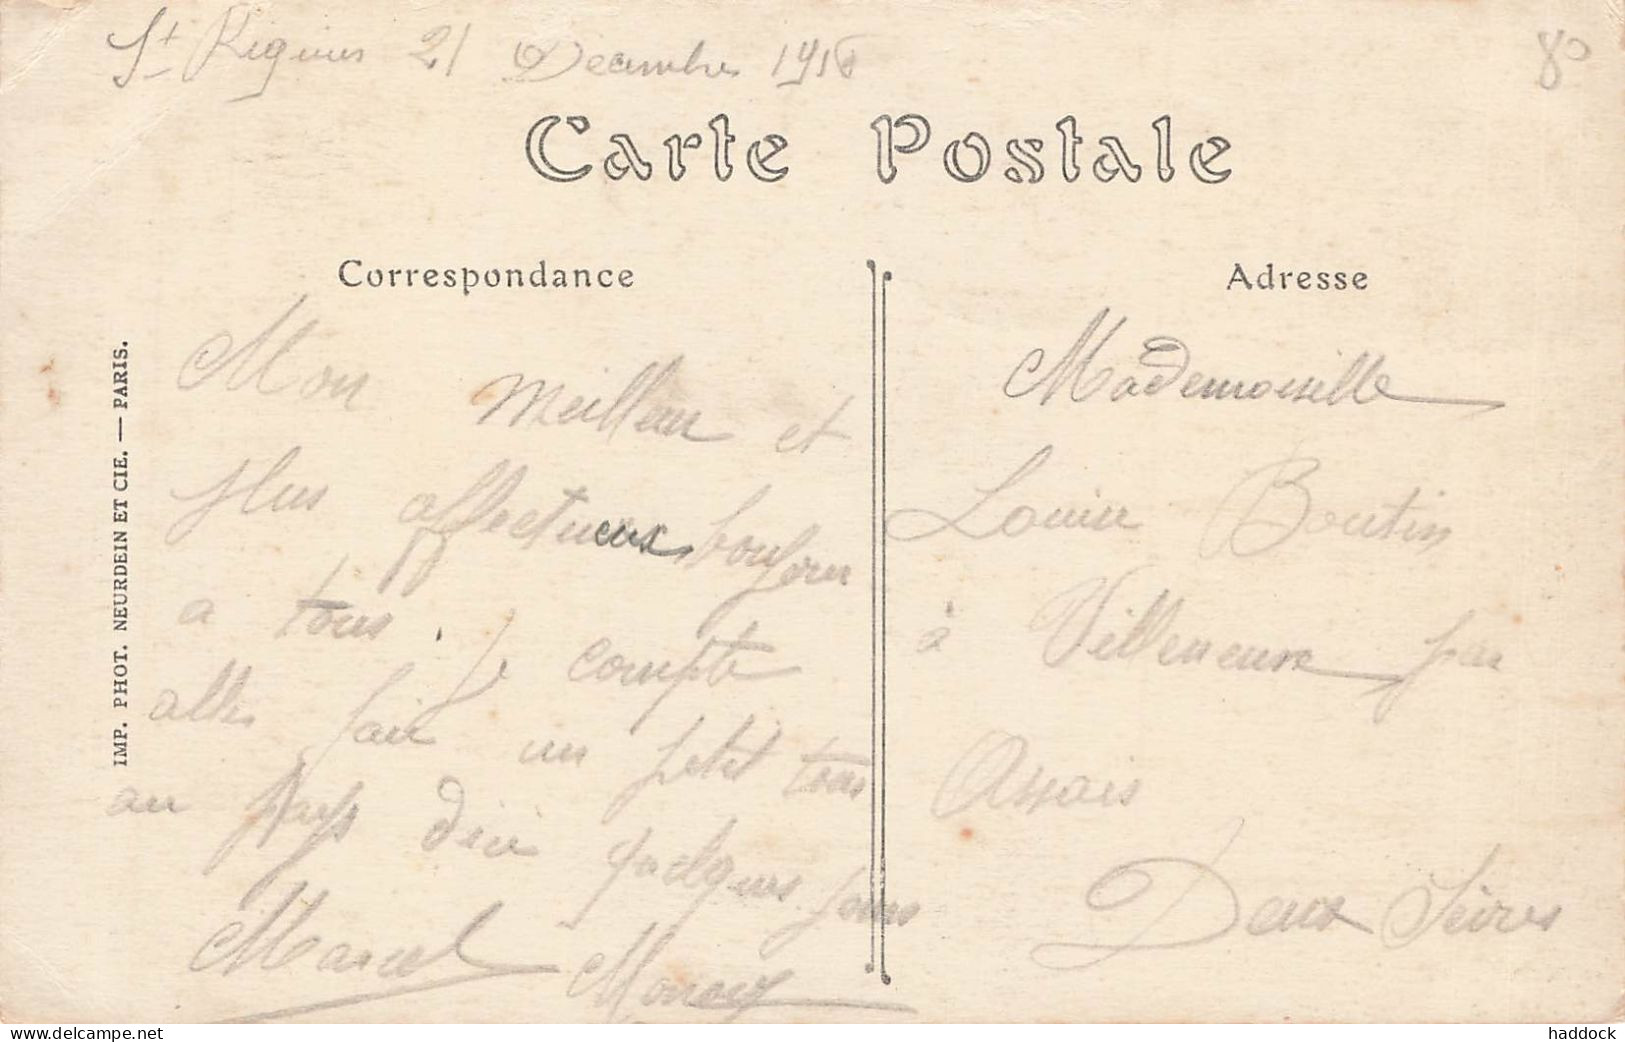 St Riquier 21 Décembre 191
80
Carte Postale
Correspondance
Adresse
Mon meilleur et
plus affectueux bonjour
a tous. Je compte
aller fair un petit tour
au pays dici quelques jours
Marcel
Mademoiselle
Louise Boutin
à Villeneuve par
Assais
Deux Sèvres
IMP. PHOT. NEURDEIN ET CIE. — PARIS.
www.delcampe.net
haddock